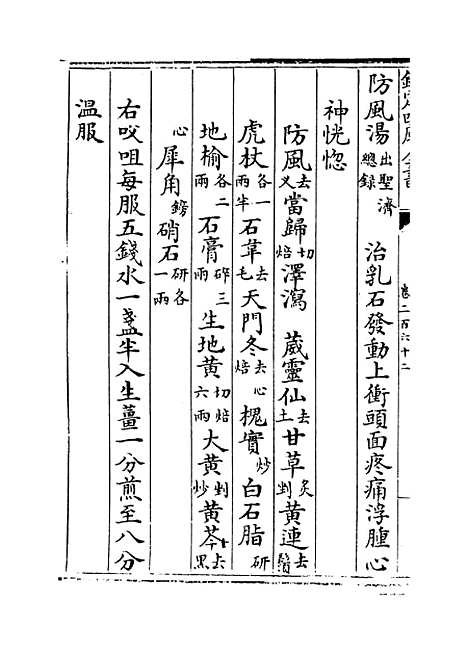 欽定四庫全書
卷二百六十二
防風湯出聖濟總錄 治乳石發動上衝頭面疼痛浮腫心
神恍惚
防風去叉當歸切焙澤瀉 葳靈仙去土甘草炙剉黃連去鬚
虎杖各一兩半石韋去毛天門冬去心焙槐實炒白石脂研
地榆各二兩石膏碎三兩生地黃切焙六兩大黃剉炒黃芩去黑
心犀角鎊硝石研各一兩
右㕮咀每服五錢水一盞半入生薑一分煎至八分
溫服